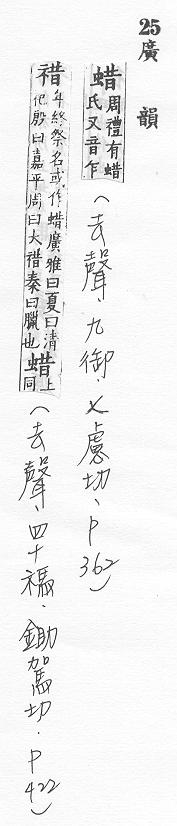 25 廣韻
蜡 周禮有蜡氏又音乍 (去聲.九御.七慮切、p362)
䄍 年終祭名或作蜡廣雅曰夏曰清祀殷曰嘉平周曰大䄍秦曰臘也 蜡 上同 (去聲、四十禡.鋤駕切.p422)